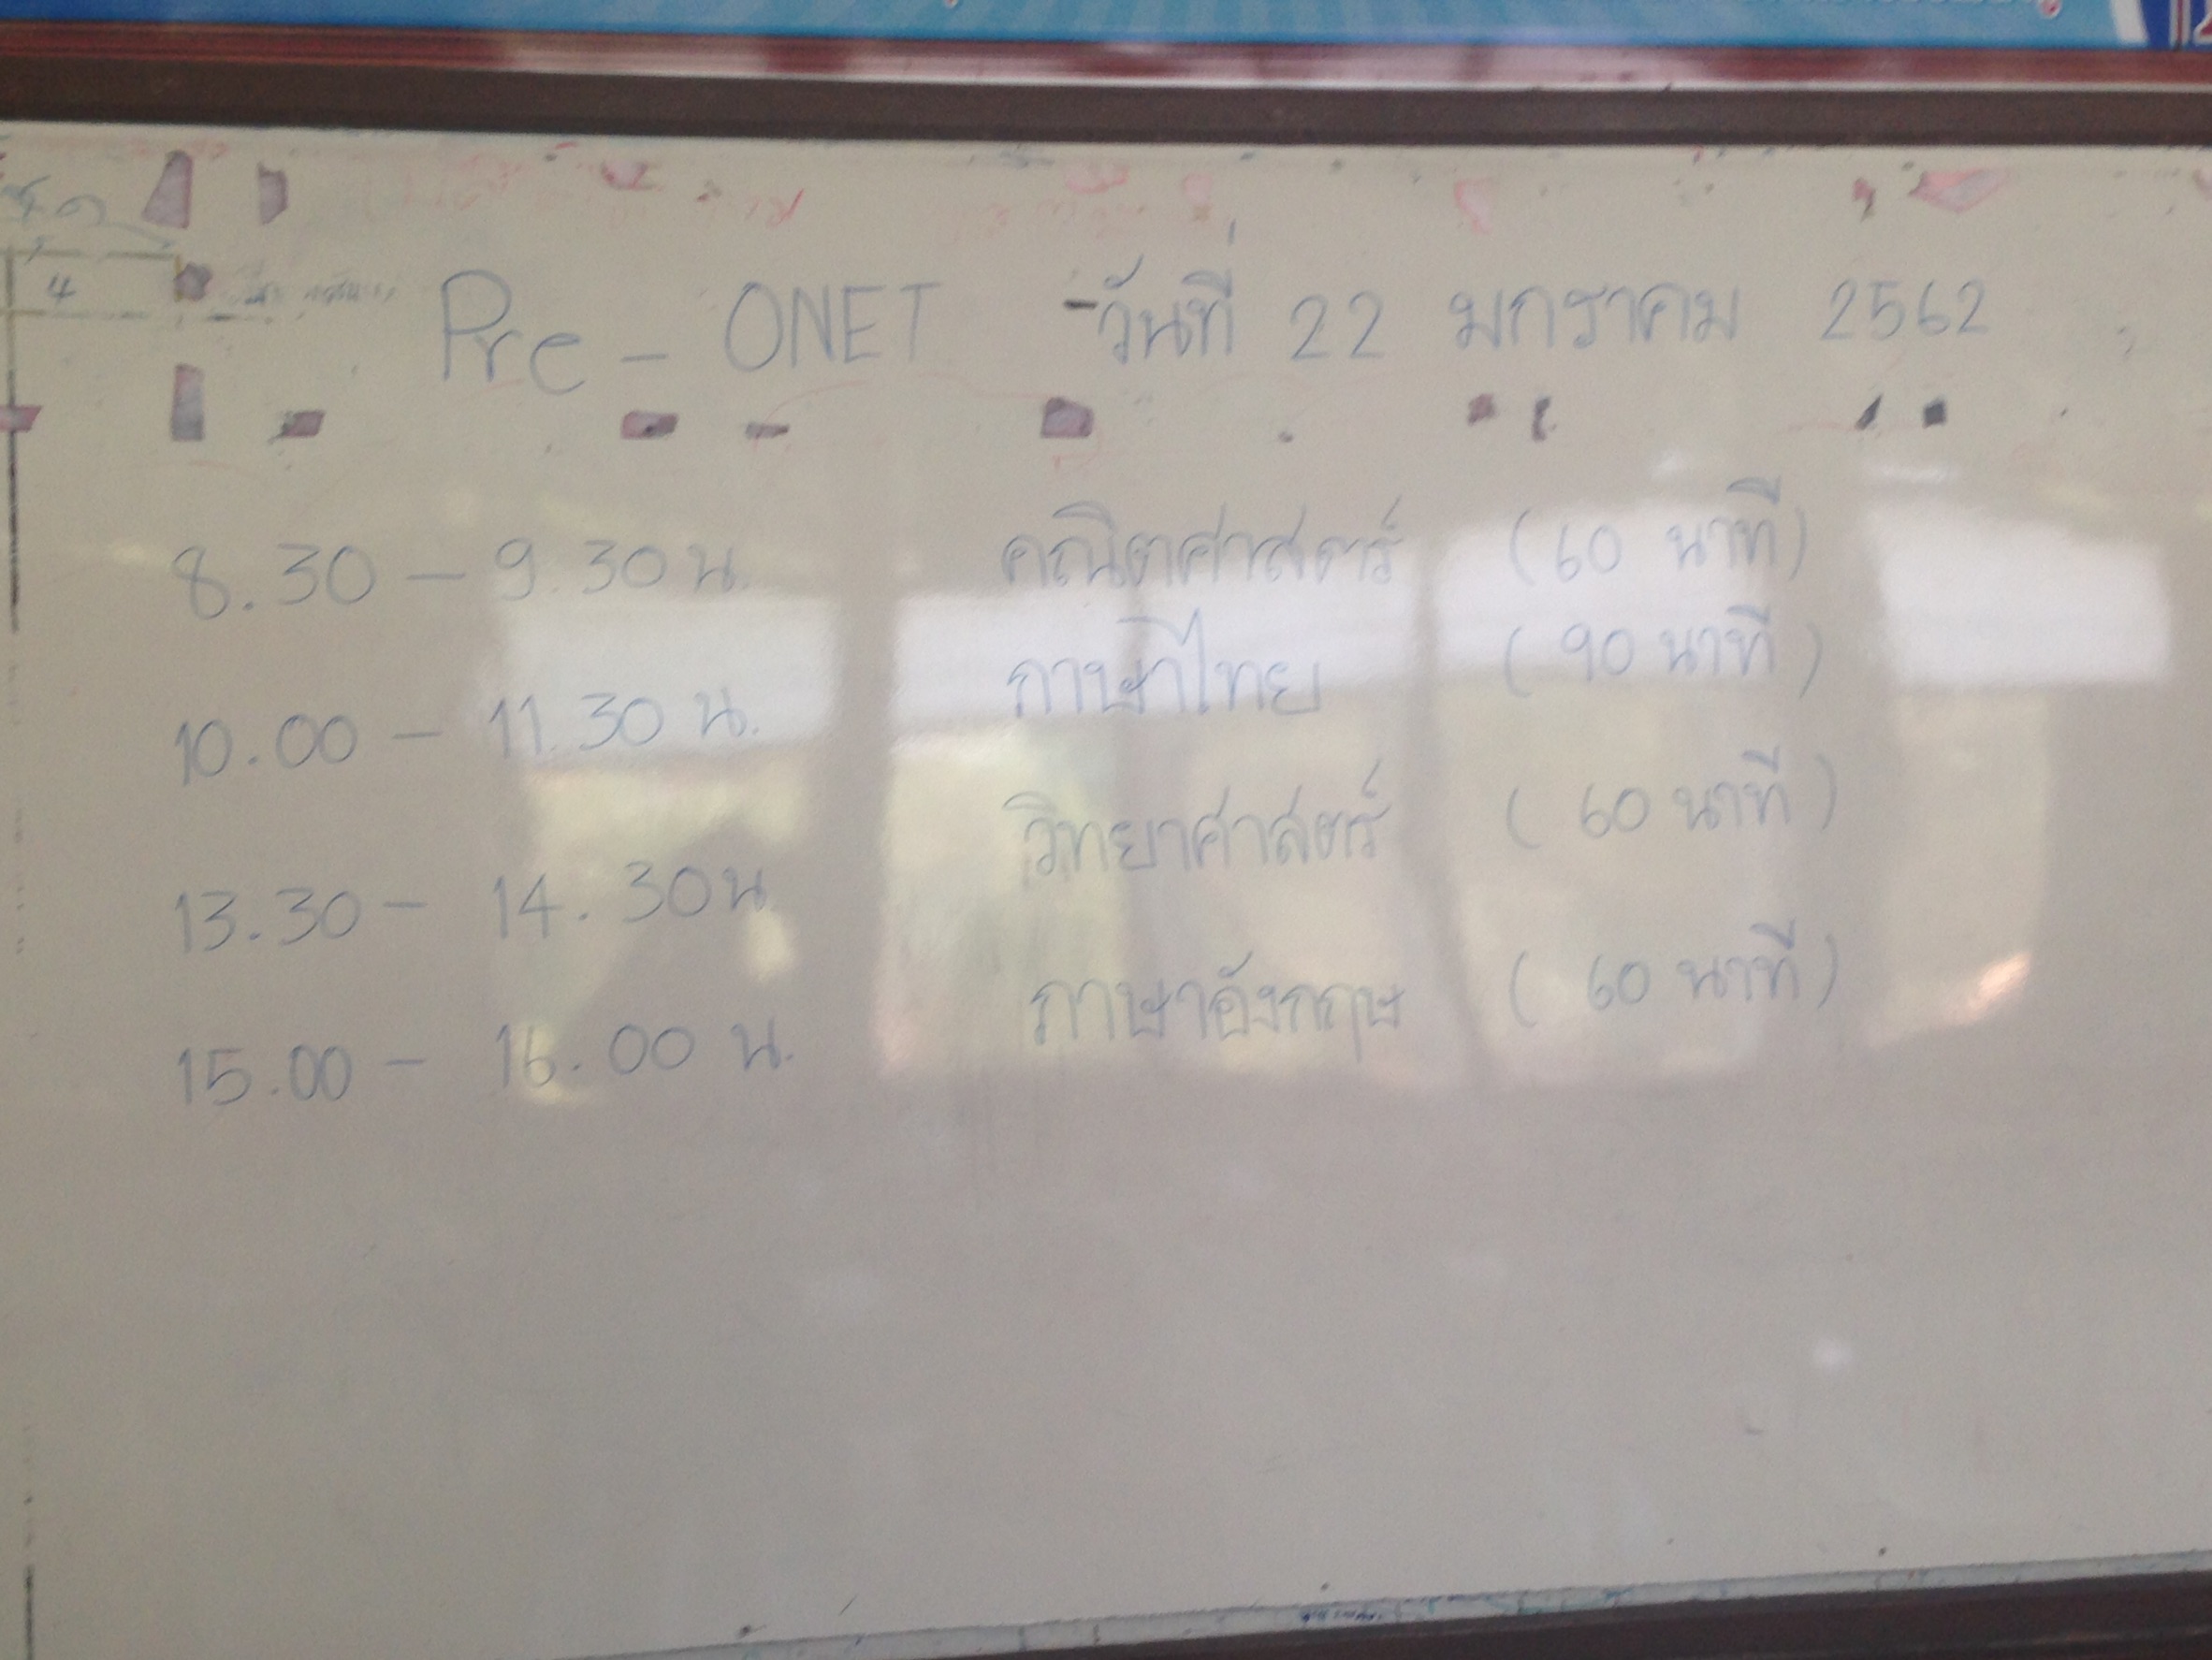 Pre - ONET วันที่ 22 มกราคม 2562
4
8.30 - 9.30 น. คณิตศาสตร์ (60 นาที)
10.00 - 11.30 น. ภาษาไทย (90 นาที)
13.30 - 14.30 น วิทยาศาสตร์ (60 นาที)
15.00 - 16.00 น. ภาษาอังกฤษ (60 นาที)